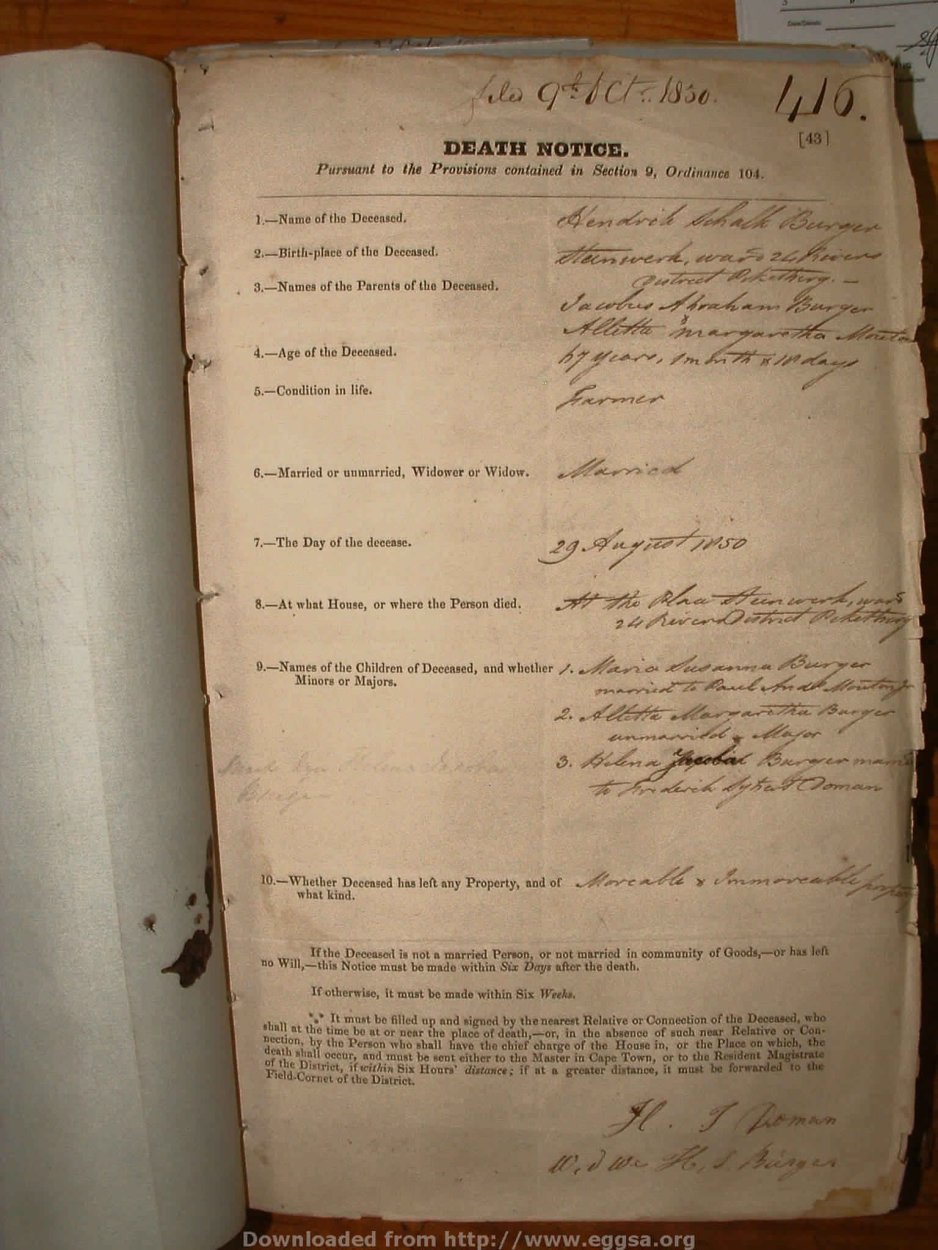 filed 9th Oct. 1850. 416.
[43]
DEATH NOTICE.
Pursuant to the Provisions contained in Section 9, Ordinance 104.
1.—Name of the Deceased. Hendrik Schalk Burger
2.—Birth-place of the Deceased. Steinwerk, ward 24 Rivers
District Piketberg. —
3.—Names of the Parents of the Deceased. Jacobus Abraham Burger
&
Alletta Margaretha Mouton
4.—Age of the Deceased. 67 years, 1 month & 18 days
5.—Condition in life. Farmer
6.—Married or unmarried, Widower or Widow. Married
7.—The Day of the decease. 29 August 1850
8.—At what House, or where the Person died. At the Place Steinwerk, ward
24 Rivers District Piketberg
9.—Names of the Children of Deceased, and whether 1. Maria Susanna Burger
Minors or Majors. married to Paul And. Mouton
2. Alletta Margaretha Burger
unmarried Major
3. Helena Jacoba Burger married
to Frederik Doman
Helena Jacoba
Burger
10.—Whether Deceased has left any Property, and of Moveable & Immoveable property
what kind.
If the Deceased is not a married Person, or not married in community of Goods,—or has left
no Will,—this Notice must be made within Six Days after the death.
If otherwise, it must be made within Six Weeks.
*** It must be filled up and signed by the nearest Relative or Connection of the Deceased, who
shall at the time be at or near the place of death,—or, in the absence of such near Relative or Con-
nection, by the Person who shall have the chief charge of the House in, or the Place on which, the
death shall occur, and must be sent either to the Master in Cape Town, or to the Resident Magistrate
of the District, if within Six Hours' distance; if at a greater distance, it must be forwarded to the
Field-Cornet of the District.
H. J Doman
W. d We H. S. Burger
Downloaded from http://www.eggsa.org